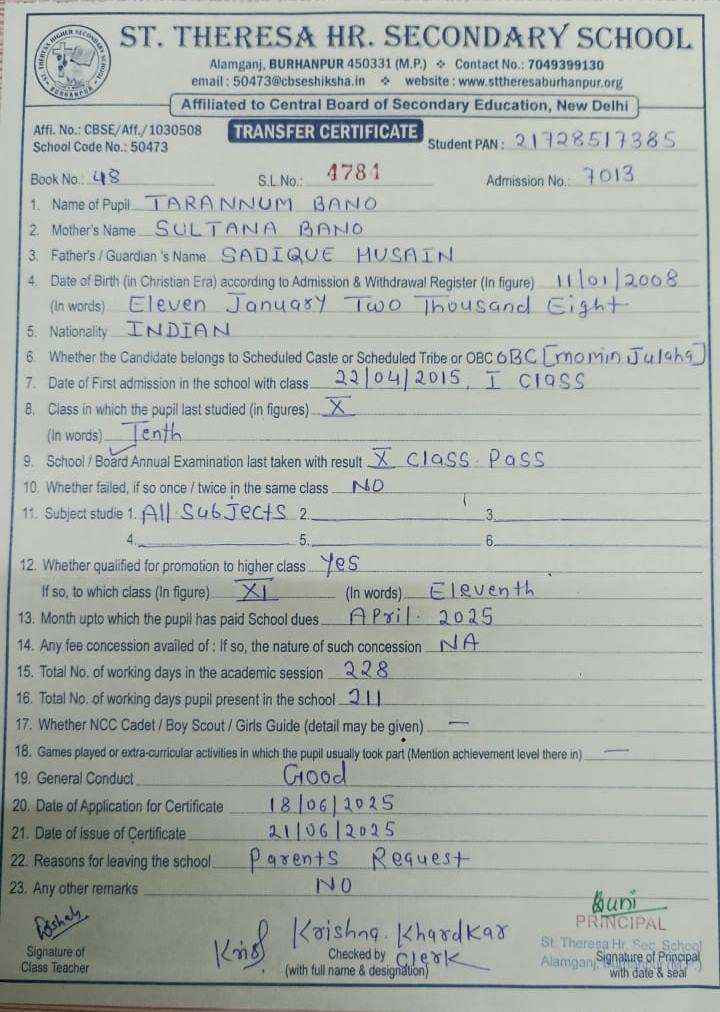 ST. THERESA HR. SECONDARY SCHOOL
Alamganj, BURHANPUR 450331 (M.P.) ❖ Contact No.: 7049399130
email : 50473@cbseshiksha.in ❖ website : www.sttheresaburhanpur.org
Affiliated to Central Board of Secondary Education, New Delhi
Affi. No.: CBSE/Aff./1030508
School Code No.: 50473
TRANSFER CERTIFICATE
Student PAN : 21728517385
Book No.: 48 S.L.No.: 4781 Admission No.: 7013
1. Name of Pupil TARANNUM BANO
2. Mother's Name SULTANA BANO
3. Father's / Guardian 's Name SADIQUE HUSAIN
4. Date of Birth (in Christian Era) according to Admission & Withdrawal Register (In figure) 11/01/2008
(In words) Eleven January Two Thousand Eight
5. Nationality INDIAN
6. Whether the Candidate belongs to Scheduled Caste or Scheduled Tribe or OBC OBC [Momin Julaha]
7. Date of First admission in the school with class 22/04/2015, I class
8. Class in which the pupil last studied (in figures) X
(In words) Tenth
9. School / Board Annual Examination last taken with result X class. Pass
10. Whether failed, if so once / twice in the same class NO
11. Subject studie 1. All Subjects 2. 3.
4. 5. 6.
12. Whether qualified for promotion to higher class Yes
If so, to which class (In figure) XI (In words) Eleventh
13. Month upto which the pupil has paid School dues April. 2025
14. Any fee concession availed of : If so, the nature of such concession NA
15. Total No. of working days in the academic session 228
16. Total No. of working days pupil present in the school 211
17. Whether NCC Cadet / Boy Scout / Girls Guide (detail may be given) —
18. Games played or extra-curricular activities in which the pupil usually took part (Mention achievement level there in) —
19. General Conduct Good
20. Date of Application for Certificate 18/06/2025
21. Date of issue of Certificate 21/06/2025
22. Reasons for leaving the school Parents Request
23. Any other remarks NO
Signature of
Class Teacher
Krishna. Khardkar
Checked by Clerk
(with full name & designation)
PRINCIPAL
St. Theresa Hr. Sec. School
Alamganj,
Signature of Principal
with date & seal